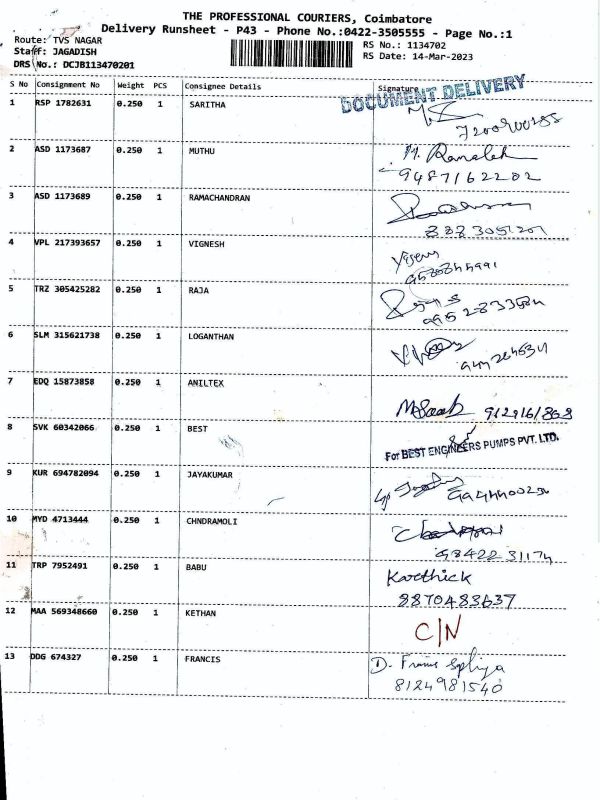 THE PROFESSIONAL COURIERS, Coimbatore
Delivery Runsheet - P43 - Phone No.:0422-3505555 - Page No.:1
Route: TVS NAGAR
Staff: JAGADISH
DRS No.: DCJB113470201
RS No.: 1134702
RS Date: 14-Mar-2023
S No Consignment No Weight PCS Consignee Details Signature
DOCUMENT DELIVERY
1 RSP 1782631 0.250 1 SARITHA
2 ASD 1173687 0.250 1 MUTHU
9487162202
3 ASD 1173689 0.250 1 RAMACHANDRAN
4 VPL 217393657 0.250 1 VIGNESH
5 TRZ 305425282 0.250 1 RAJA
6 SLM 315621738 0.250 1 LOGANTHAN
7 EDQ 15873858 0.250 1 ANILTEX
8 SVK 60342066 0.250 1 BEST
For BEST ENGINEERS PUMPS PVT. LTD.
9 KUR 694782094 0.250 1 JAYAKUMAR
10 MYD 4713444 0.250 1 CHNDRAMOLI
98422 31174
11 TRP 7952491 0.250 1 BABU
Karthick
8870483637
12 MAA 569348660 0.250 1 KETHAN
C/N
13 DDG 674327 0.250 1 FRANCIS
D. Francis
8124981540